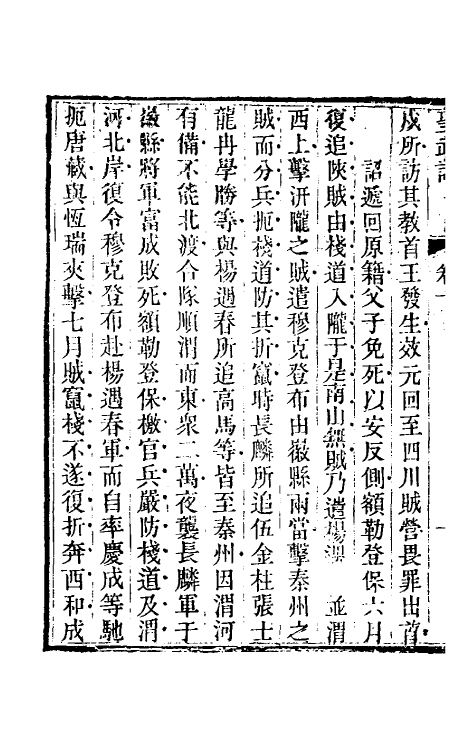 聖武記 卷十
戍所訪其教首王發生效元回至四川賊營畏罪出首
詔遞回原籍父子免死以安反側額勒登保六月
復追陝賊由棧道入隴于是南山無賊乃遣楊遇 並渭
西上擊汧隴之賊遣穆克登布由徽縣兩當擊秦州之
賊而分兵扼棧道防其折竄時長麟所追伍金柱張士
龍冉學勝等與楊遇春所追高馬等皆至秦州因渭河
有備不能北渡合隊順渭而東衆二萬夜襲長麟軍于
徽縣將軍富成敗死額勒登保檄官兵嚴防棧道及渭
河北岸復令穆克登布赴楊遇春軍而自率慶成等馳
扼唐藏與恆瑞夾擊七月賊竄棧不遂復折奔西和成